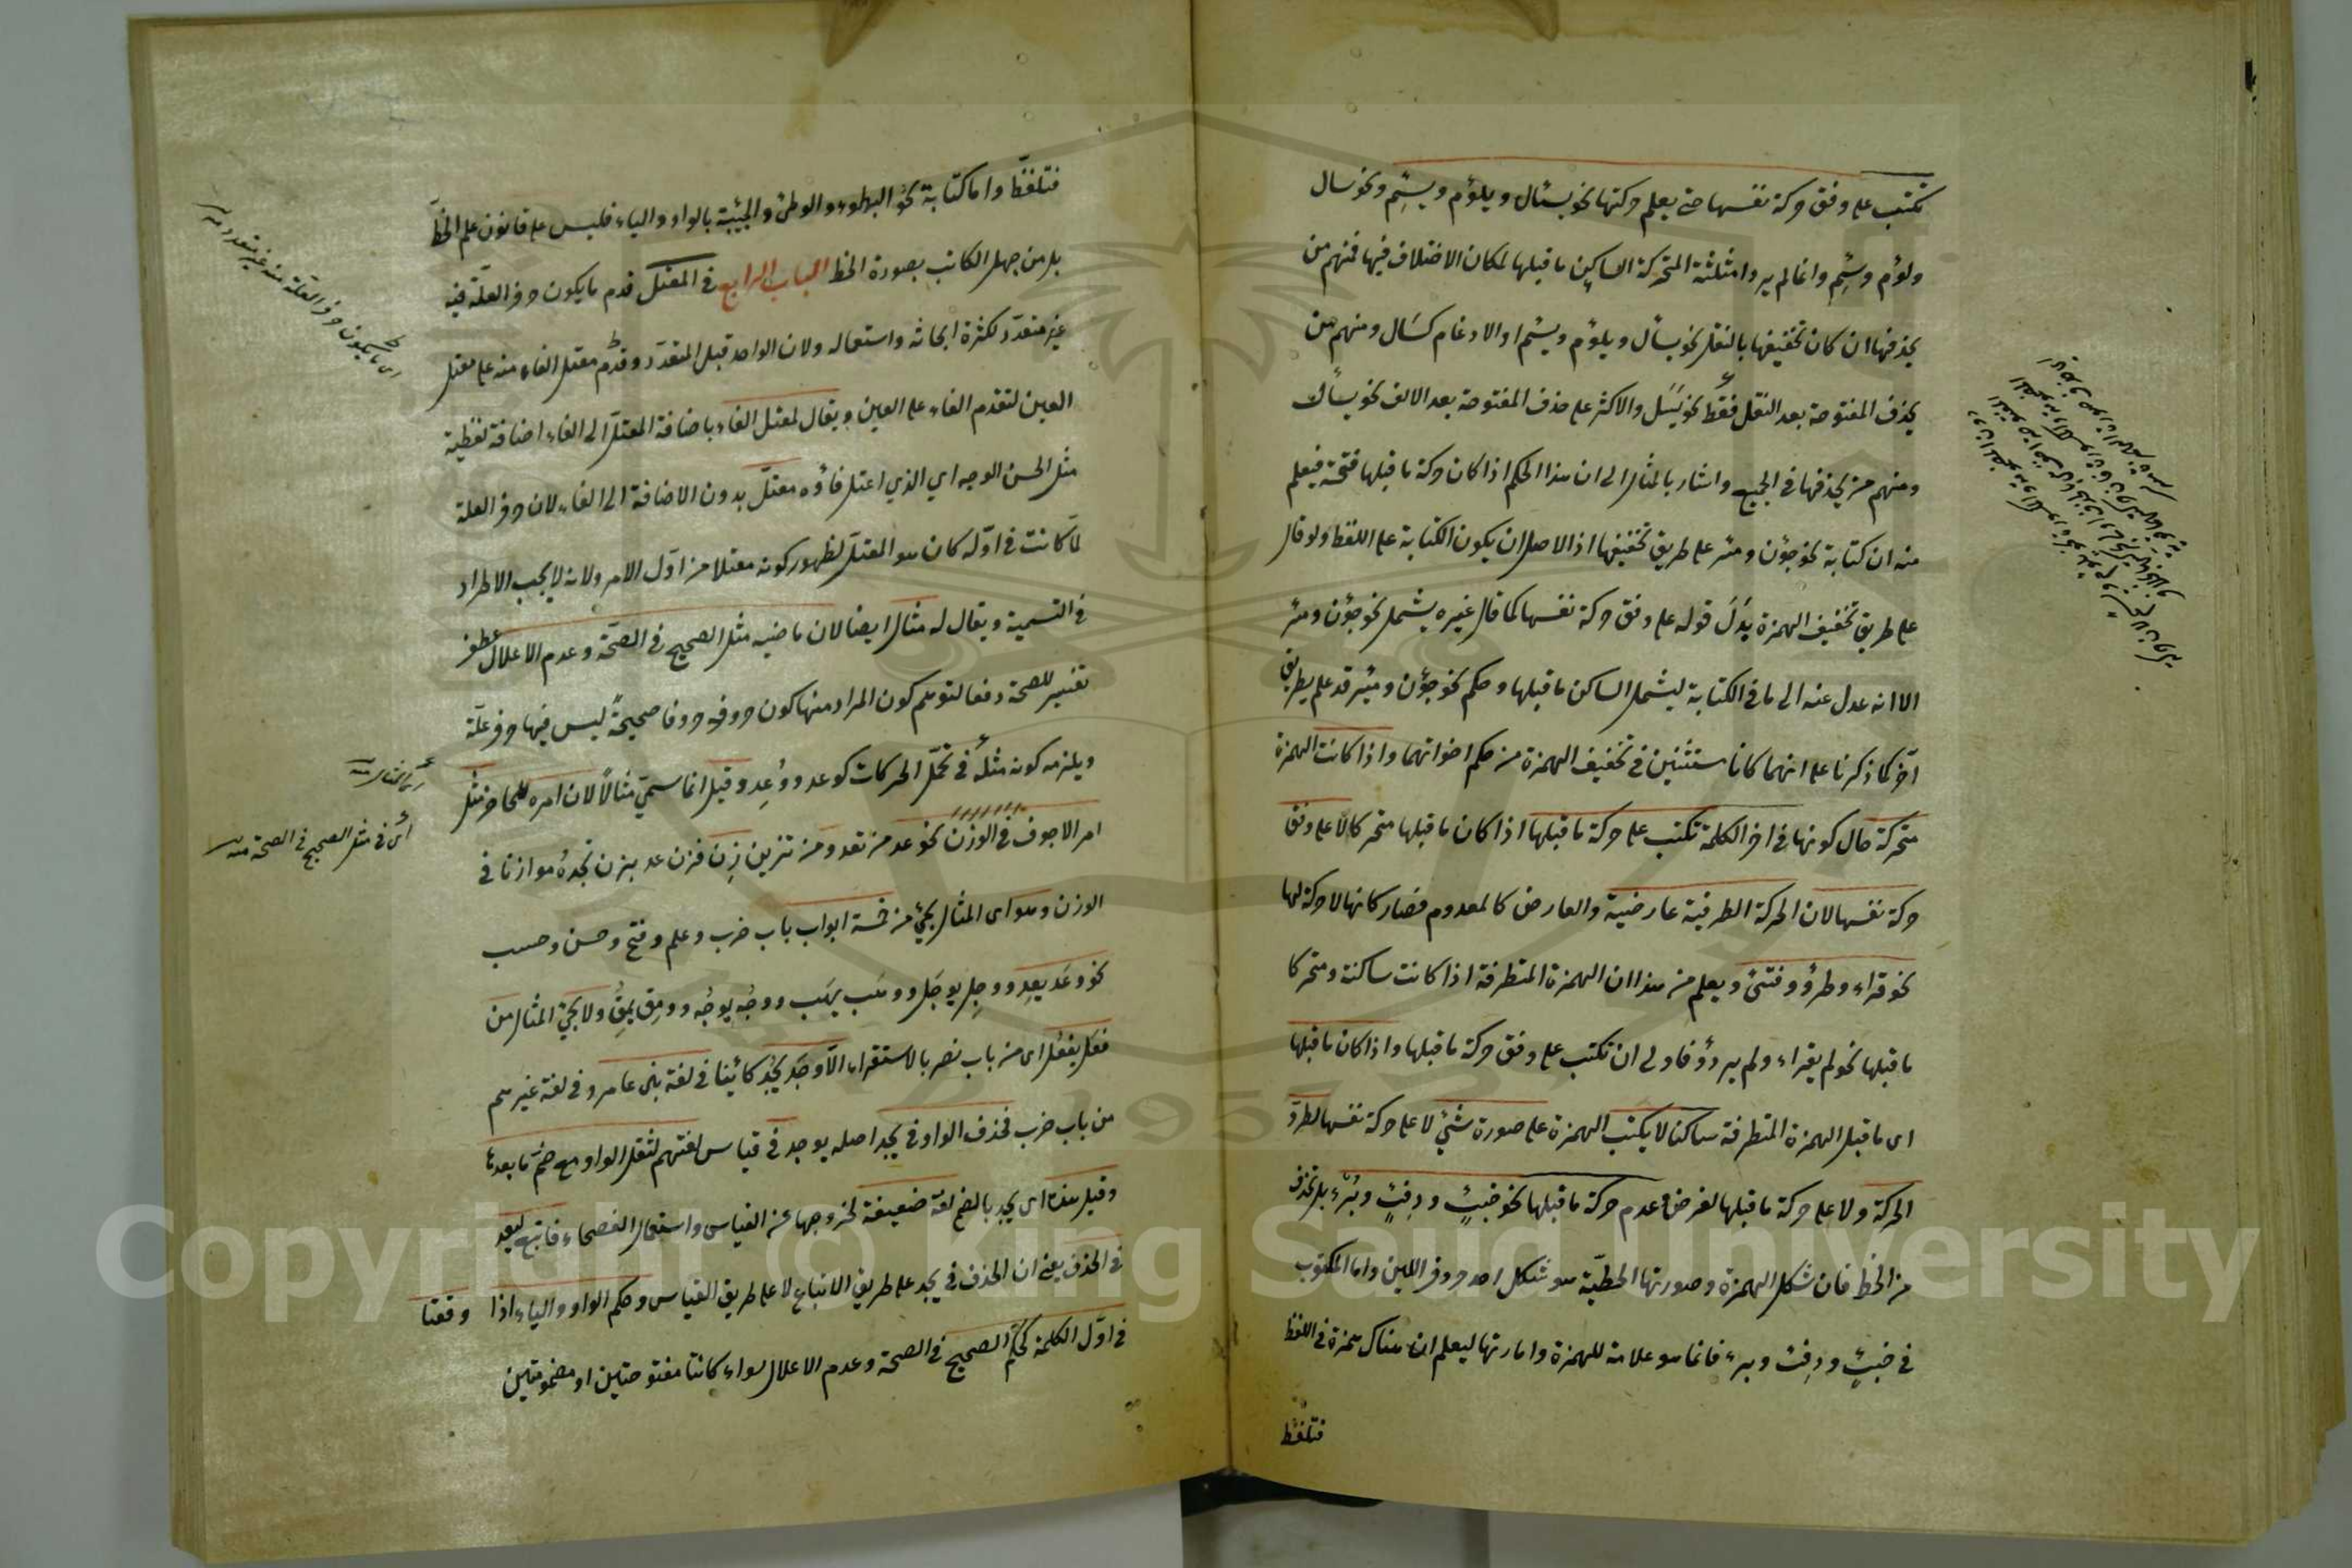 تكتب على وفق حركة نفسها حتى يعلم حركتها نحو يسئال ويلؤم ويسئم ونحو سال
ولؤم وسئم وانما لم يرد امثلثة المتحركة الساكن ما قبلها لمكان الاختلاف فيها فمنهم من
يحذفها ان كان تخفيفها بالنقل نحو يسأل ويلؤم ويسئم او الادغام كسال ومنهم من
يحذف المفتوحة بعد النقل فقط نحو يسئل والاكثر على حذف المفتوحة بعد الالف نحو يسأل
ومنهم من يحذفها في الجميع واشار بالمثال الى ان هذا الحكم اذا كان حركة ما قبلها فتحة فيعلم
منه ان كتابة نحو جؤن ومئر على طريق تخفيفها اذ الاصل ان يكون الكتابة على اللفظ ولو قال
على طريق تخفيف الهمزة بدل قوله على وفق حركة نفسها كما قال غيره يشمل نحو جؤن ومئر
الا انه عدل عنه الى ما في الكتابة ليشمل الساكن ما قبلها وحكم نحو جؤن ومئر قد علم بطريق
آخر كما ذكرنا على انهما كانا مستثنين في تخفيف الهمزة من حكم اخواتهما واذا كانت الهمزة
متحركة حال كونها في اخر الكلمة تكتب على حركة ما قبلها اذا كان ما قبلها متحركا لا على وفق
حركة نفسها لان الحركة الطرفية عارضية والعارض كالمعدوم فصار كانها لا حركة لها
نحو قراء وطرؤ وفتئ ويعلم من هذا ان الهمزة المتطرفة اذا كانت ساكنة ومتحركا
ما قبلها نحو لم يقراء ولم يردؤ فاولى ان تكتب على وفق حركة ما قبلها واذا كان ما قبلها
اى ما قبل الهمزة المتطرفة ساكنا لا يكتب الهمزة على صورة شئ لا على حركة نفسها لطرو
الحركة ولا على حركة ما قبلها لفرض عدم حركة ما قبلها نحو خبئ ودفئ وبرء بل تحذف
من الخط فان شكل الهمزة وصورتها الخطية هو شكل احد حروف اللين واما المكتوب
في خبئ ودفئ وبرء فانما هو علامة للهمزة وامارتها ليعلم ان هناك همزة في اللفظ
فتلفظ
فتلفظ واما كتابة نحو البطوء والوطئ والجيئة بالواو والياء فليس على قانون علم الخط
بل من جهل الكاتب بصورة الخط الباب الرابع في المعتل قدم ما يكون حرف العلة فيه
غير متعدد لكثرة ابحاثه واستعماله ولان الواحد قبل المتعدد وقدم معتل الفاء منه على معتل
العين لتقدم الفاء على العين ويقال لمعتل الفاء باضافة المعتل الى الفاء اضافة لفظية
مثل الحسن الوجه اي الذي اعتل فاؤه معتل بدون الاضافة الى الفاء لان حرف العلة
لما كانت في اوله كان هو المعتل لظهور كونه معتلا من اول الامر ولانه لا يجب الاطراد
في التسمية ويقال له مثال ايضا لان ماضيه مثل الصحيح في الصحة وعدم الاعلال عطف
تفسير للصحة دفعا لتوهم كون المراد منها كون حروفه حروفا صحيحة ليس فيها حرف علة
ويلزمه كونه مثله في تحمل الحركات كوعد ووعد وقيل انما سمي مثالا لان امره للحاضر مثل
امر الاجوف في الوزن نحو عد من تعد ومن تزين زن فزن عد بزن تجده موازنا في
الوزن وهو اى المثال يجئ من خمسة ابواب باب ضرب وعلم وفتح وحسن وحسب
نحو وعد يعد ووجل يوجل ووهب يهب ووجه يوجه وومق يمق ولا يجئ المثال من
فعل يفعل اى من باب نصر بالاستقراء الا وجد يجد كائنا في لغة بنى عامر وفي لغة غيرهم
من باب ضرب فحذف الواو في يجد اصله يوجد في قياس لغتهم لثقل الواو مع ضم ما بعدها
وقيل هذه اى يجد بالضم لغة ضعيفة لخروجها عن القياس واستعمال الفصحاء فاتبع ليعد
في الحذف يعنى ان الحذف في يجد على طريق الاتباع لا على طريق القياس وحكم الواو والياء اذا وقعتا
في اول الكلمة كحكم الصحيح في الصحة وعدم الاعلال سواء كانتا مفتوحتين او مضمومتين
اى ما يكون حرف العلة منه غير متعدد منه
اى المثال منه
اى في مثل الصحيح في الصحة منه
Copyright © King Saud University
195